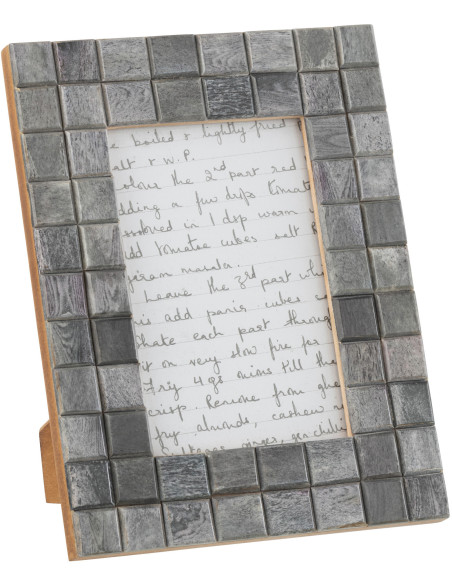 e boiled & lightly fried
alt & W.P.
olour the 2nd part red
dding a few drps tomato
ssolved in 1 dsp warm
dd tomatoe cubes salt
garam masala.
Leave the 3rd part whi
is add panir cubes
hake each part throug
it on very slow fire for
Fry 4 gs onions till the
crisp. Remove from ghe
fry almonds, cashew
ginger, gr chille